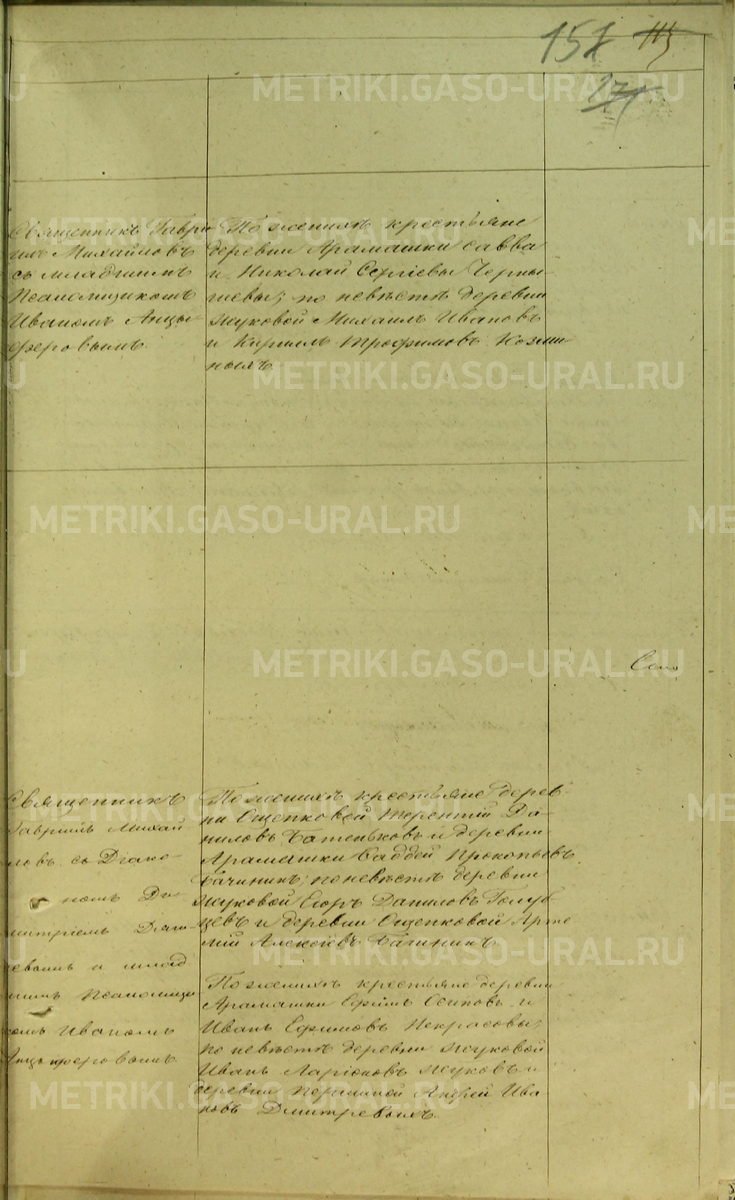 157
METRIKI.GASO-URAL.RU
Священникъ Гаври
илъ Михайловъ
съ младшимъ
Псаломщикомъ
Иваномъ Анцы-
феровымъ.
По женихѣ крестьяне
деревни Арамашки Савва
и Николай Сергіевы Черны
шевы; по невѣстѣ деревни
Жуковой Михаилъ Ивановъ
и Кириллъ Трофимовъ Козми
ныхъ
METRIKI.GASO-URAL.RU
METRIKI.GASO-URAL.RU
METRIKI.GASO-URAL.RU
Священникъ
Гавріилъ Михай
ловъ со Діако-
номъ Ди
митріемъ
и млад
шимъ Псаломщи
комъ Иваномъ
Анцыферовымъ
По женихѣ крестьяне дерев
ни Ощепковой Терентій Да-
ниловъ Батеньковъ и деревни
Арамашки Фаддей Прокопьевъ
Бачининъ; по невѣстѣ деревни
Жуковой Егоръ Даниловъ Голуб
цевъ и деревни Ощепковой Арте
мій Алексѣевъ Бачининъ
По женихѣ крестьяне деревни
Арамашки Ефимъ Осиповъ и
Иванъ Ефимовъ Некрасовы;
по невѣстѣ деревни Жуковой
Иванъ Ларіоновъ Жуковъ и
деревни Андрей Ива
новъ Дмитревыхъ
METRIKI.GASO-URAL.RU
METRIKI.GASO-URAL.RU
METRIKI.GASO-URAL.RU